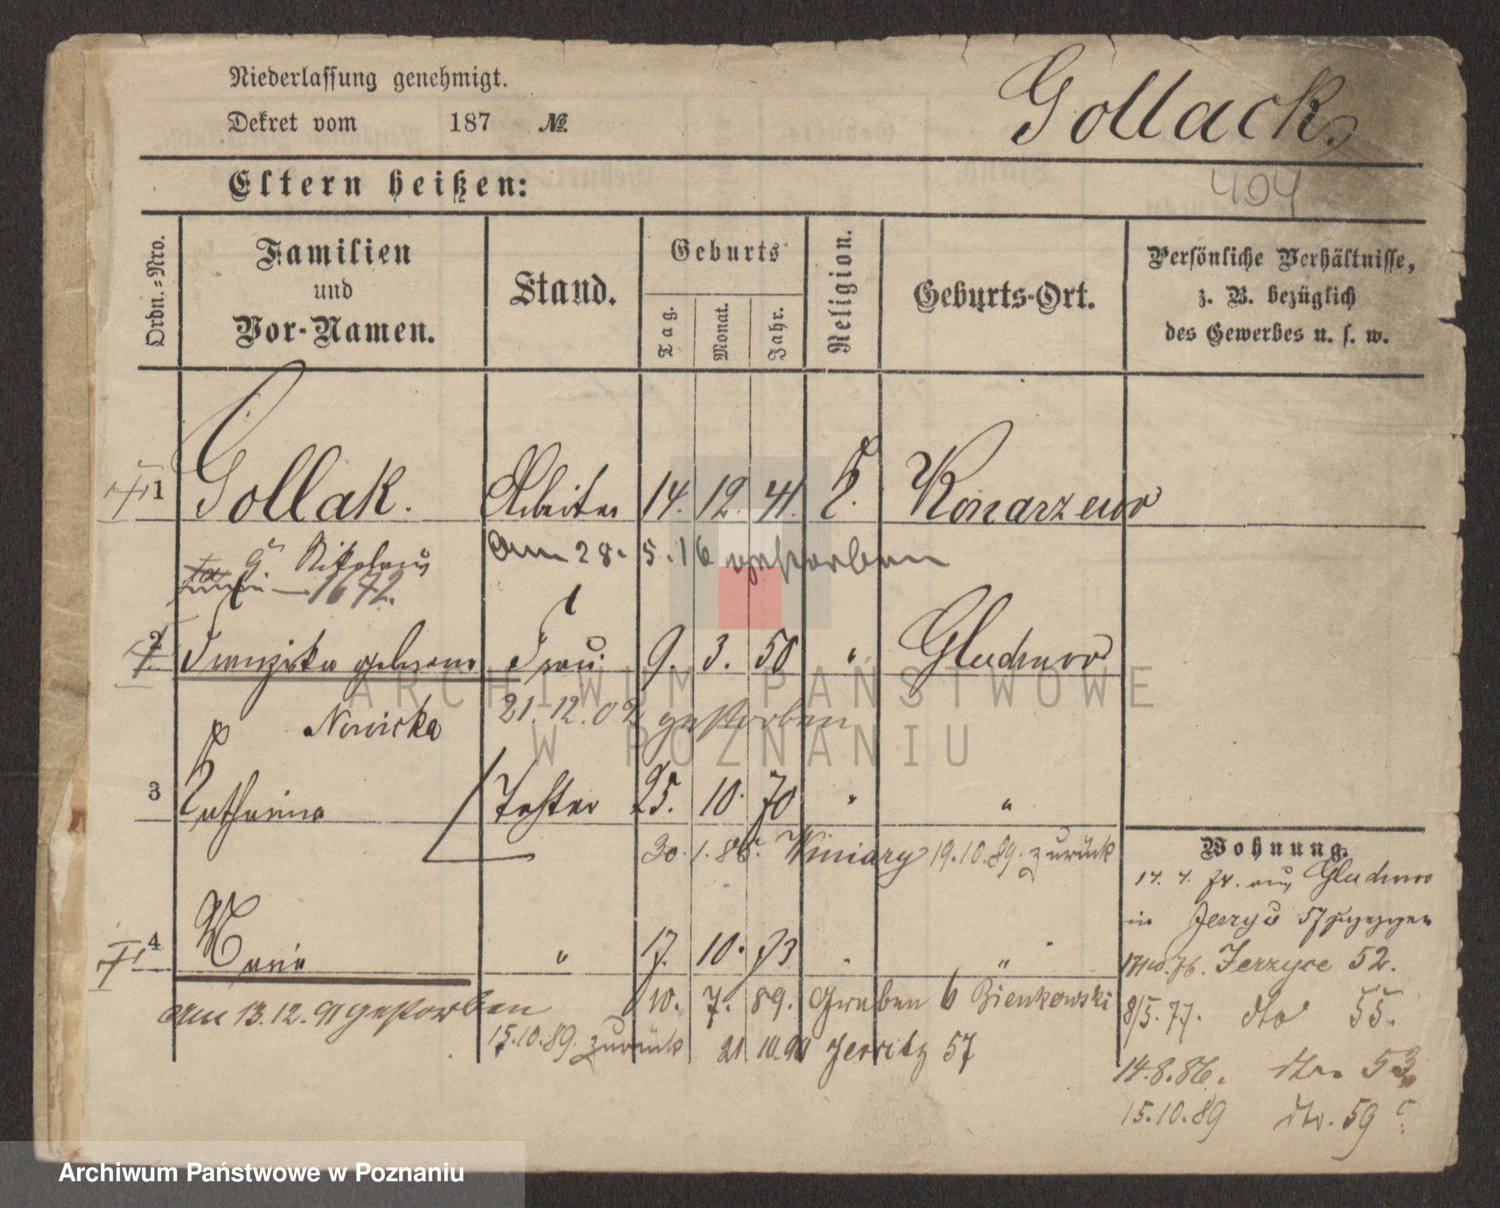 Niederlassung genehmigt.
Dekret vom 187 №
Gollack.
Eltern heißen:
404
Ordn.-Nro.
Familien
und
Vor-Namen.
Stand.
Geburts
Tag.
Monat.
Jahr.
Religion.
Geburts-Ort.
Persönliche Verhältnisse,
z. B. bezüglich
des Gewerbes u. s. w.
1 Gollak. Arbeiter 14. 12. 41. Konarzewo
Nikolaus am 28. 5. 16 gestorben
1672.
2 Franziska geborene Frau 9. 3. 50 " Gluchowo
Nowicka 21.12.02 gestorben
3 Katharina Tochter 25. 10. 70 " "
30. 1. 88. Winiary 19.10.89. zurück
4 Maria " 17. 10. 73 " "
am 13.12.91 gestorben 10. 7. 89. Graben 6 Bienkowski
15.10.89. zurück 21 10.90 Jerritz 57
Wohnung.
aus Gluchowo
in Jerzyce 57 gezogen
Jerzyce 52.
8/5.77. dto 55.
14.8.86. dto 53
15.10.89 dto. 59
ARCHIWUM PAŃSTWOWE
W POZNANIU
Archiwum Państwowe w Poznaniu